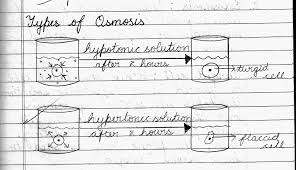 Types of Osmosis
hypotonic solution
after 2 hours
turgid
cell
hypertonic solution
after 2 hours
flaccid
cell